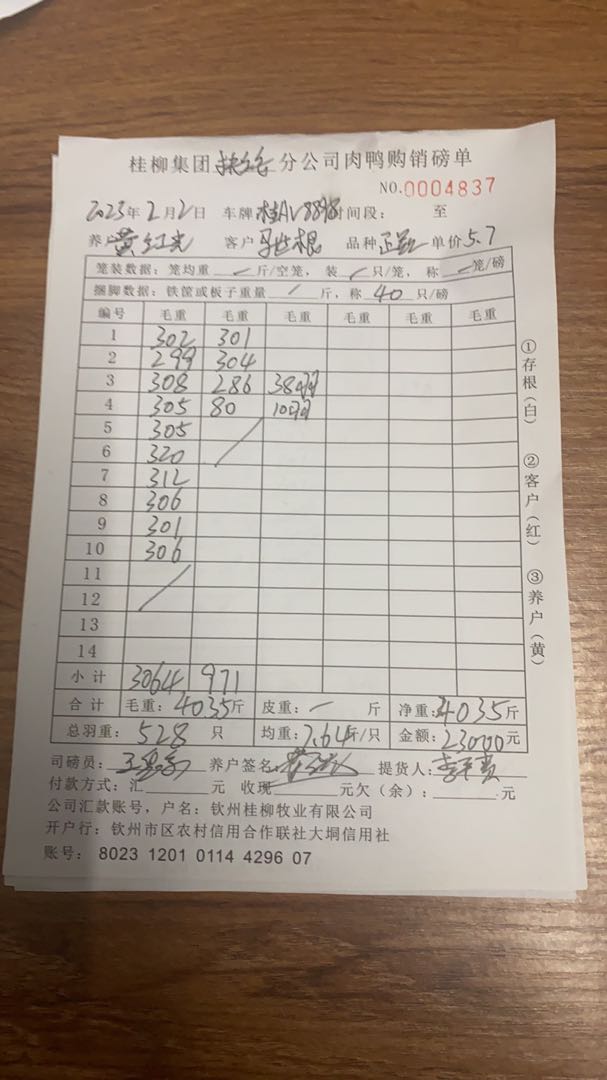 桂柳集团 分公司肉鸭购销磅单
NO.0004837
2023年2月2日 车牌 桂AV8898 时间段: 至
养户 黄红光 客户 根 品种 单价 5.7
笼装数据:笼均重 斤/空笼,装 只/笼,称 笼/磅
捆脚数据:铁筐或板子重量 / 斤,称 40 只/磅
编号 毛重 毛重 毛重 毛重 毛重 毛重
1 302 301
2 299 304
3 308 286 38羽
4 305 80 10羽
5 305
6 320
7 312
8 306
9 301
10 306
11
12
13
14
小计 3064 971
合计 毛重:4035斤 皮重:一 斤 净重:4035斤
总羽重:528 只 均重:7.64斤/只 金额:23000元
司磅员: 养户签名: 提货人:
付款方式:汇 元 收现 元欠(余): 元
公司汇款账号,户名:钦州桂柳牧业有限公司
开户行:钦州市区农村信用合作联社大垌信用社
账号:8023 1201 0114 4296 07
①存根(白)
②客户(红)
③养户(黄)